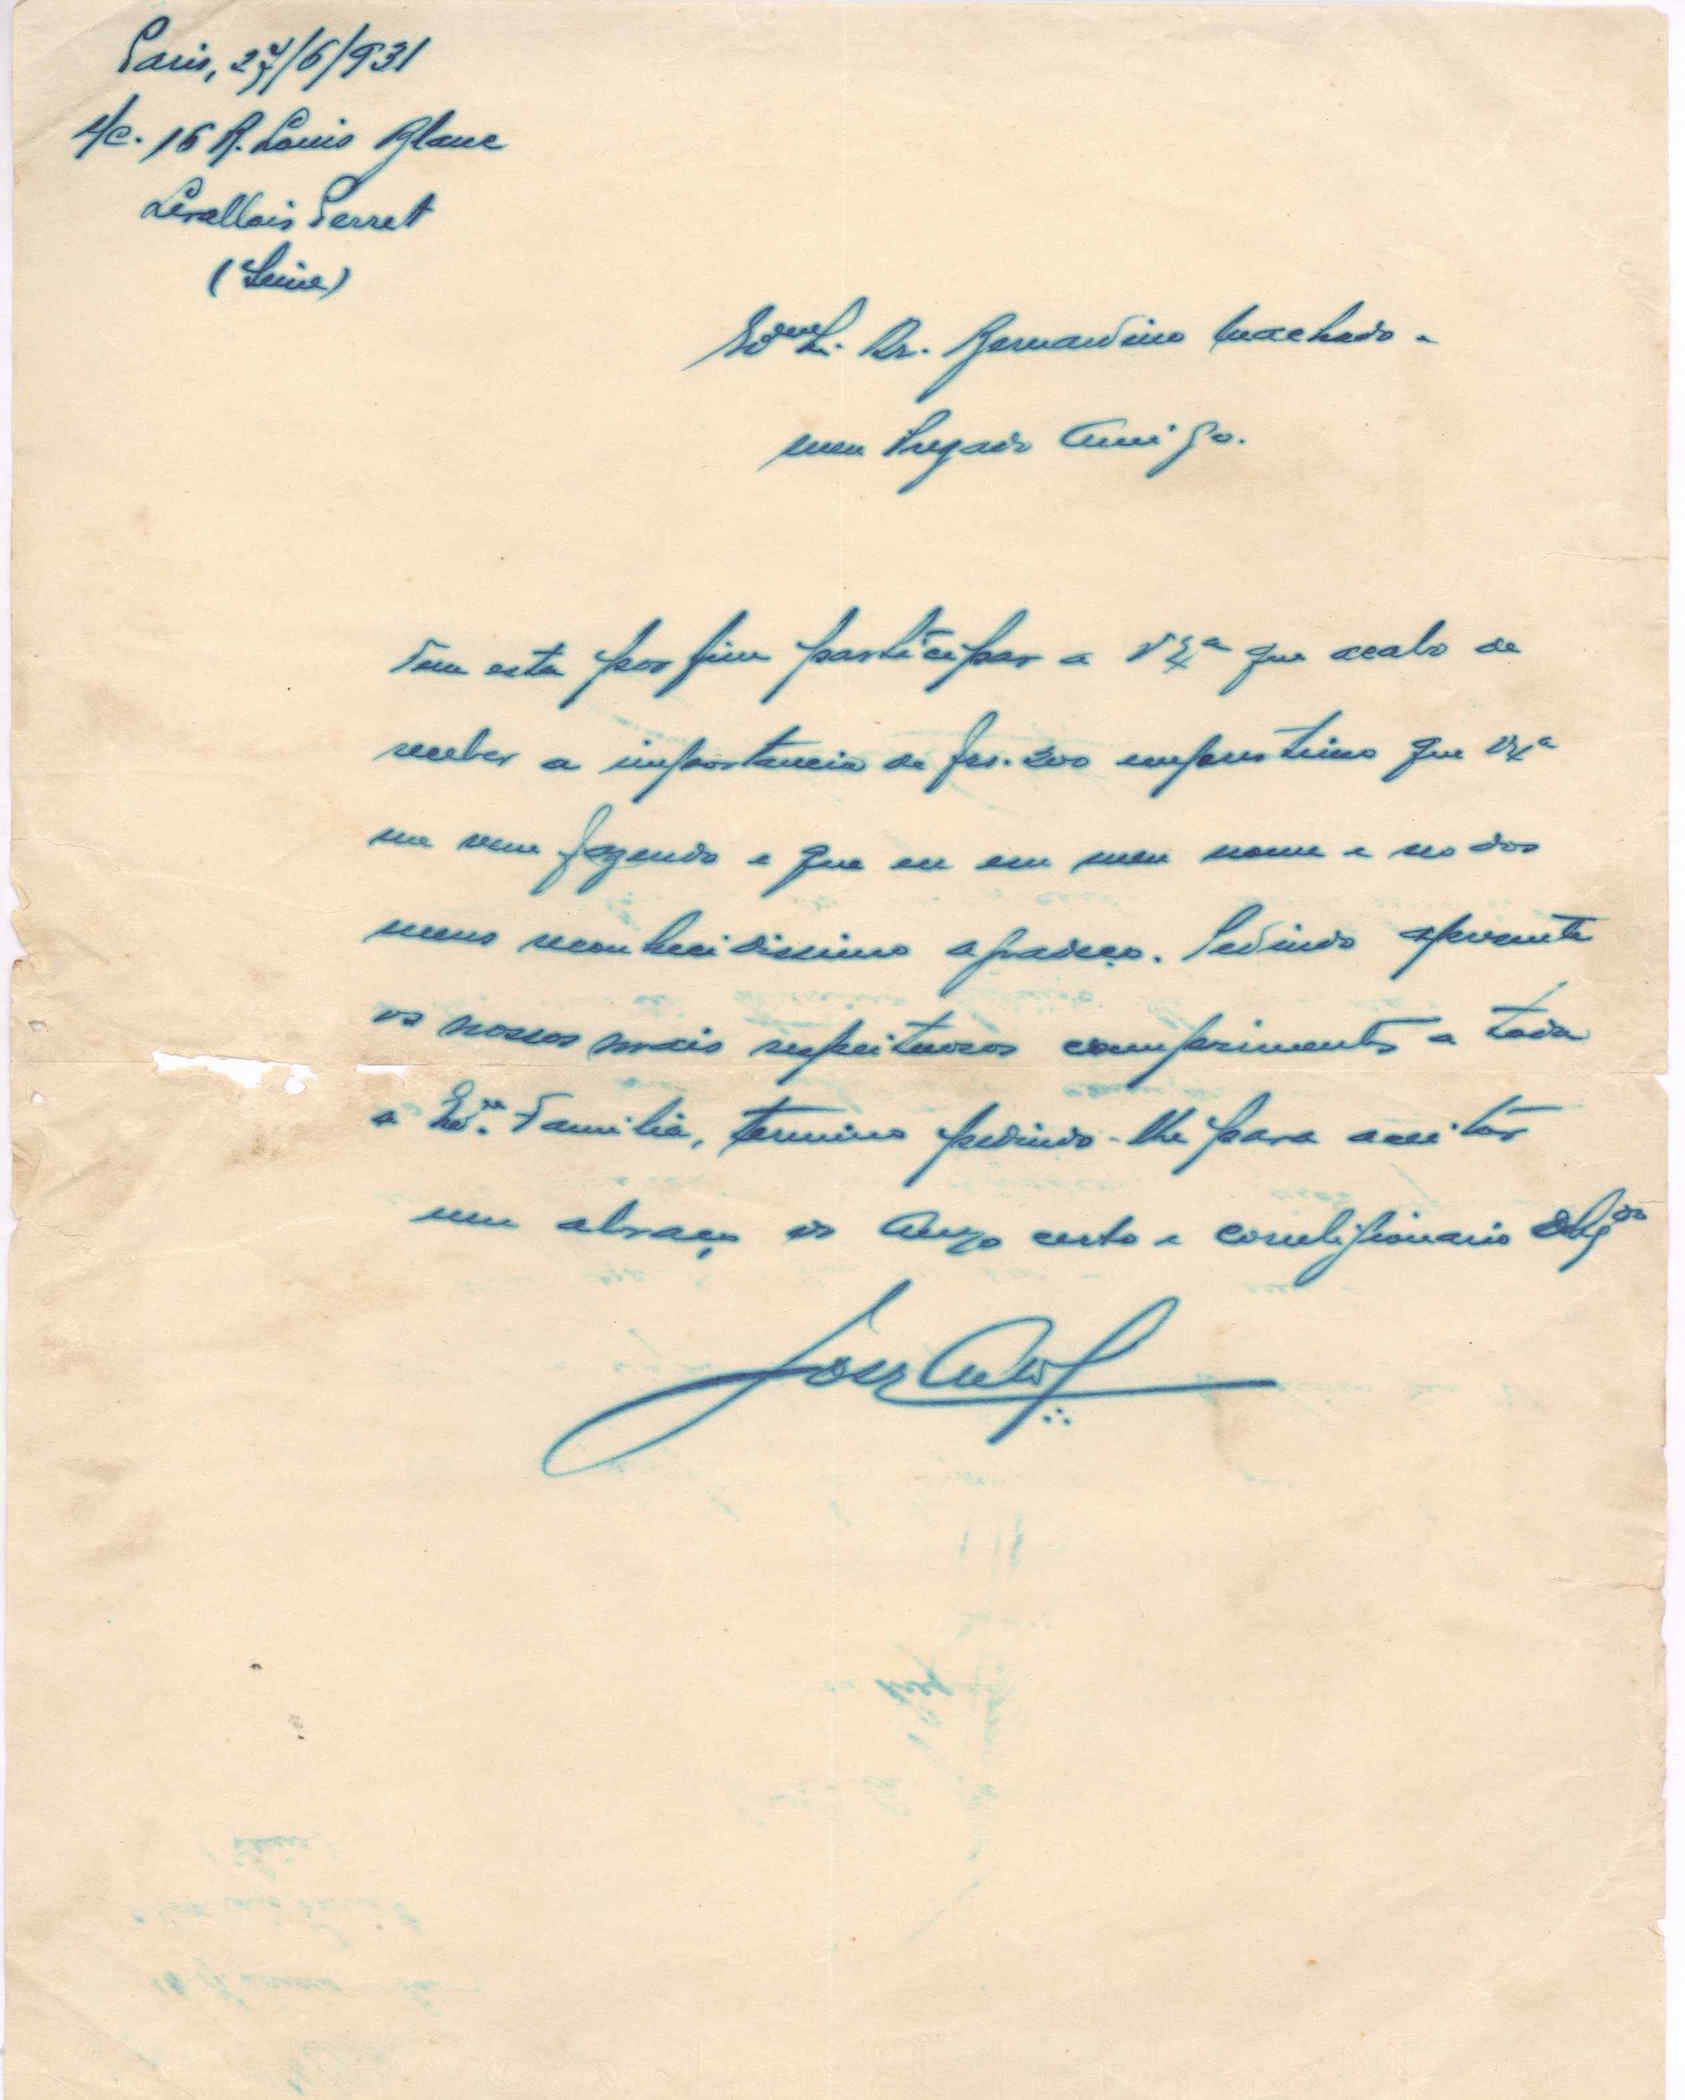 Paris, 27/6/931
16 R. Louis Blanc
Levallois Perret
(Seine)
Exmo Sr. Dr. Bernardino Machado -
meu Prezado Amigo.
Vem esta por fim participar a V Exª que acabo de
receber a importancia de frs. 200 emprestimo que V Exª
me vem fazendo e que eu em meu nome e no dos
meus reconhecidissimo agradeço. Pedindo apresente
os nossos mais respeituosos comprimentos a toda
a Exma. Familia, termino pedindo-lhe para aceitar
um abraço do Amgo certo e correligionario Obgdo
José